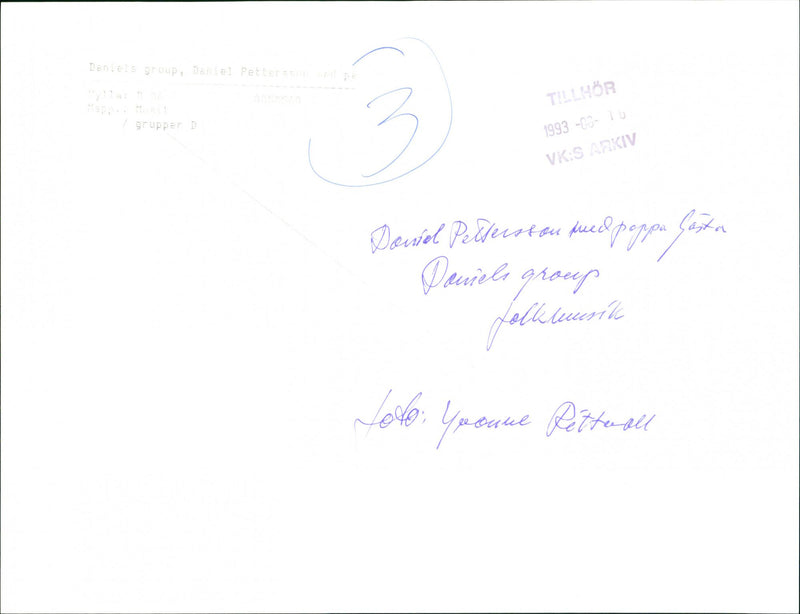 Daniels group, Daniel Pettersson med pa
Mapp: Musik
/ grupper D
3
TILLHÖR
1993 -08-
VK:S ARKIV
Daniel Pettersson med pappa Gösta
Daniels group
folkmusik
foto: Yvonne Rittvall